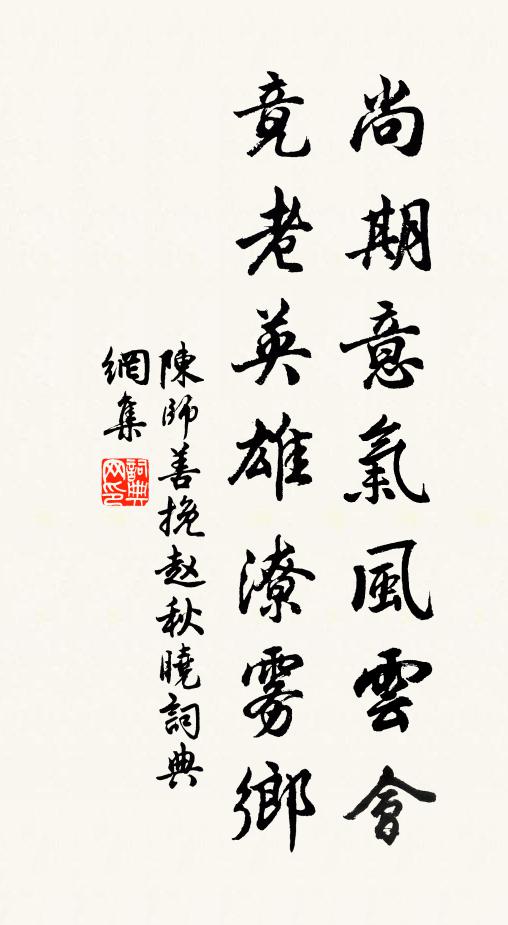 尚期意氣風雲會
竟老英雄潦雾鄉
陳師善挽赵秋曉詞典
網集
詞典
网印